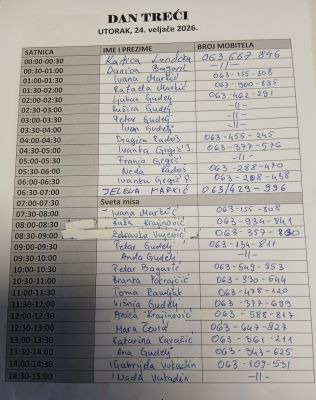 DAN TREĆI
UTORAK, 24. veljače 2026.
SATNICA IME I PREZIME BROJ MOBITELA
00:00-00:30 Katica 063 667 846
00:30-01:00 Danica Bagarić -||-
01:00-01:30 Ivana Markić 063-155-808
01:30-02:00 Rafaela Markić 063-300-835
02:00-02:30 Ljuban Gudelj 063-462-291
02:30-03:00 Ružica Gudelj -||-
03:00-03:30 Petar Gudelj -||-
03:30-04:00 Ivan Gudelj -||-
04:00-04:30 Dragica Radoš 063-455-245
04:30-05:00 Ivanka Grgić 063-377-576
05:00-05:30 Franjo Grgić -||-
05:30-06:00 Neda Radoš 063-288-470
06:00-06:30 Ivanka Grgić 063-208-458
06:30-07:00 JELENA MARKIĆ 063/429-996
07:00-07:30 Sveta misa
07:30-08:00 Ivana Markić 063-155-808
08:00-08:30 Krajinović 063-934-841
08:30-09:00 Zdravka Vujević 063-357-830
09:00-09:30 Petar Gudelj 063-134-811
09:30-10:00 Anda Gudelj -||-
10:00-10:30 Petar Bagarić 063-549-853
10:30-11:00 Branka Pokrajčić 063-330-544
11:00-11:30 Toma Pavljak 063-478-120
11:30-12:00 Višnja Gudelj 063-377-699
12:00-12:30 Anica Krajinović 063-588-817
12:30-13:00 Mara Ćosić 063-647-827
13:00-13:30 Katarina Karačić 063-361-211
13:30-14:00 Ana Gudelj 063-343-625
14:00-14:30 Gabrijela Vukadin 063-109-531
14:30-15:00 Nada Vukadin -||-